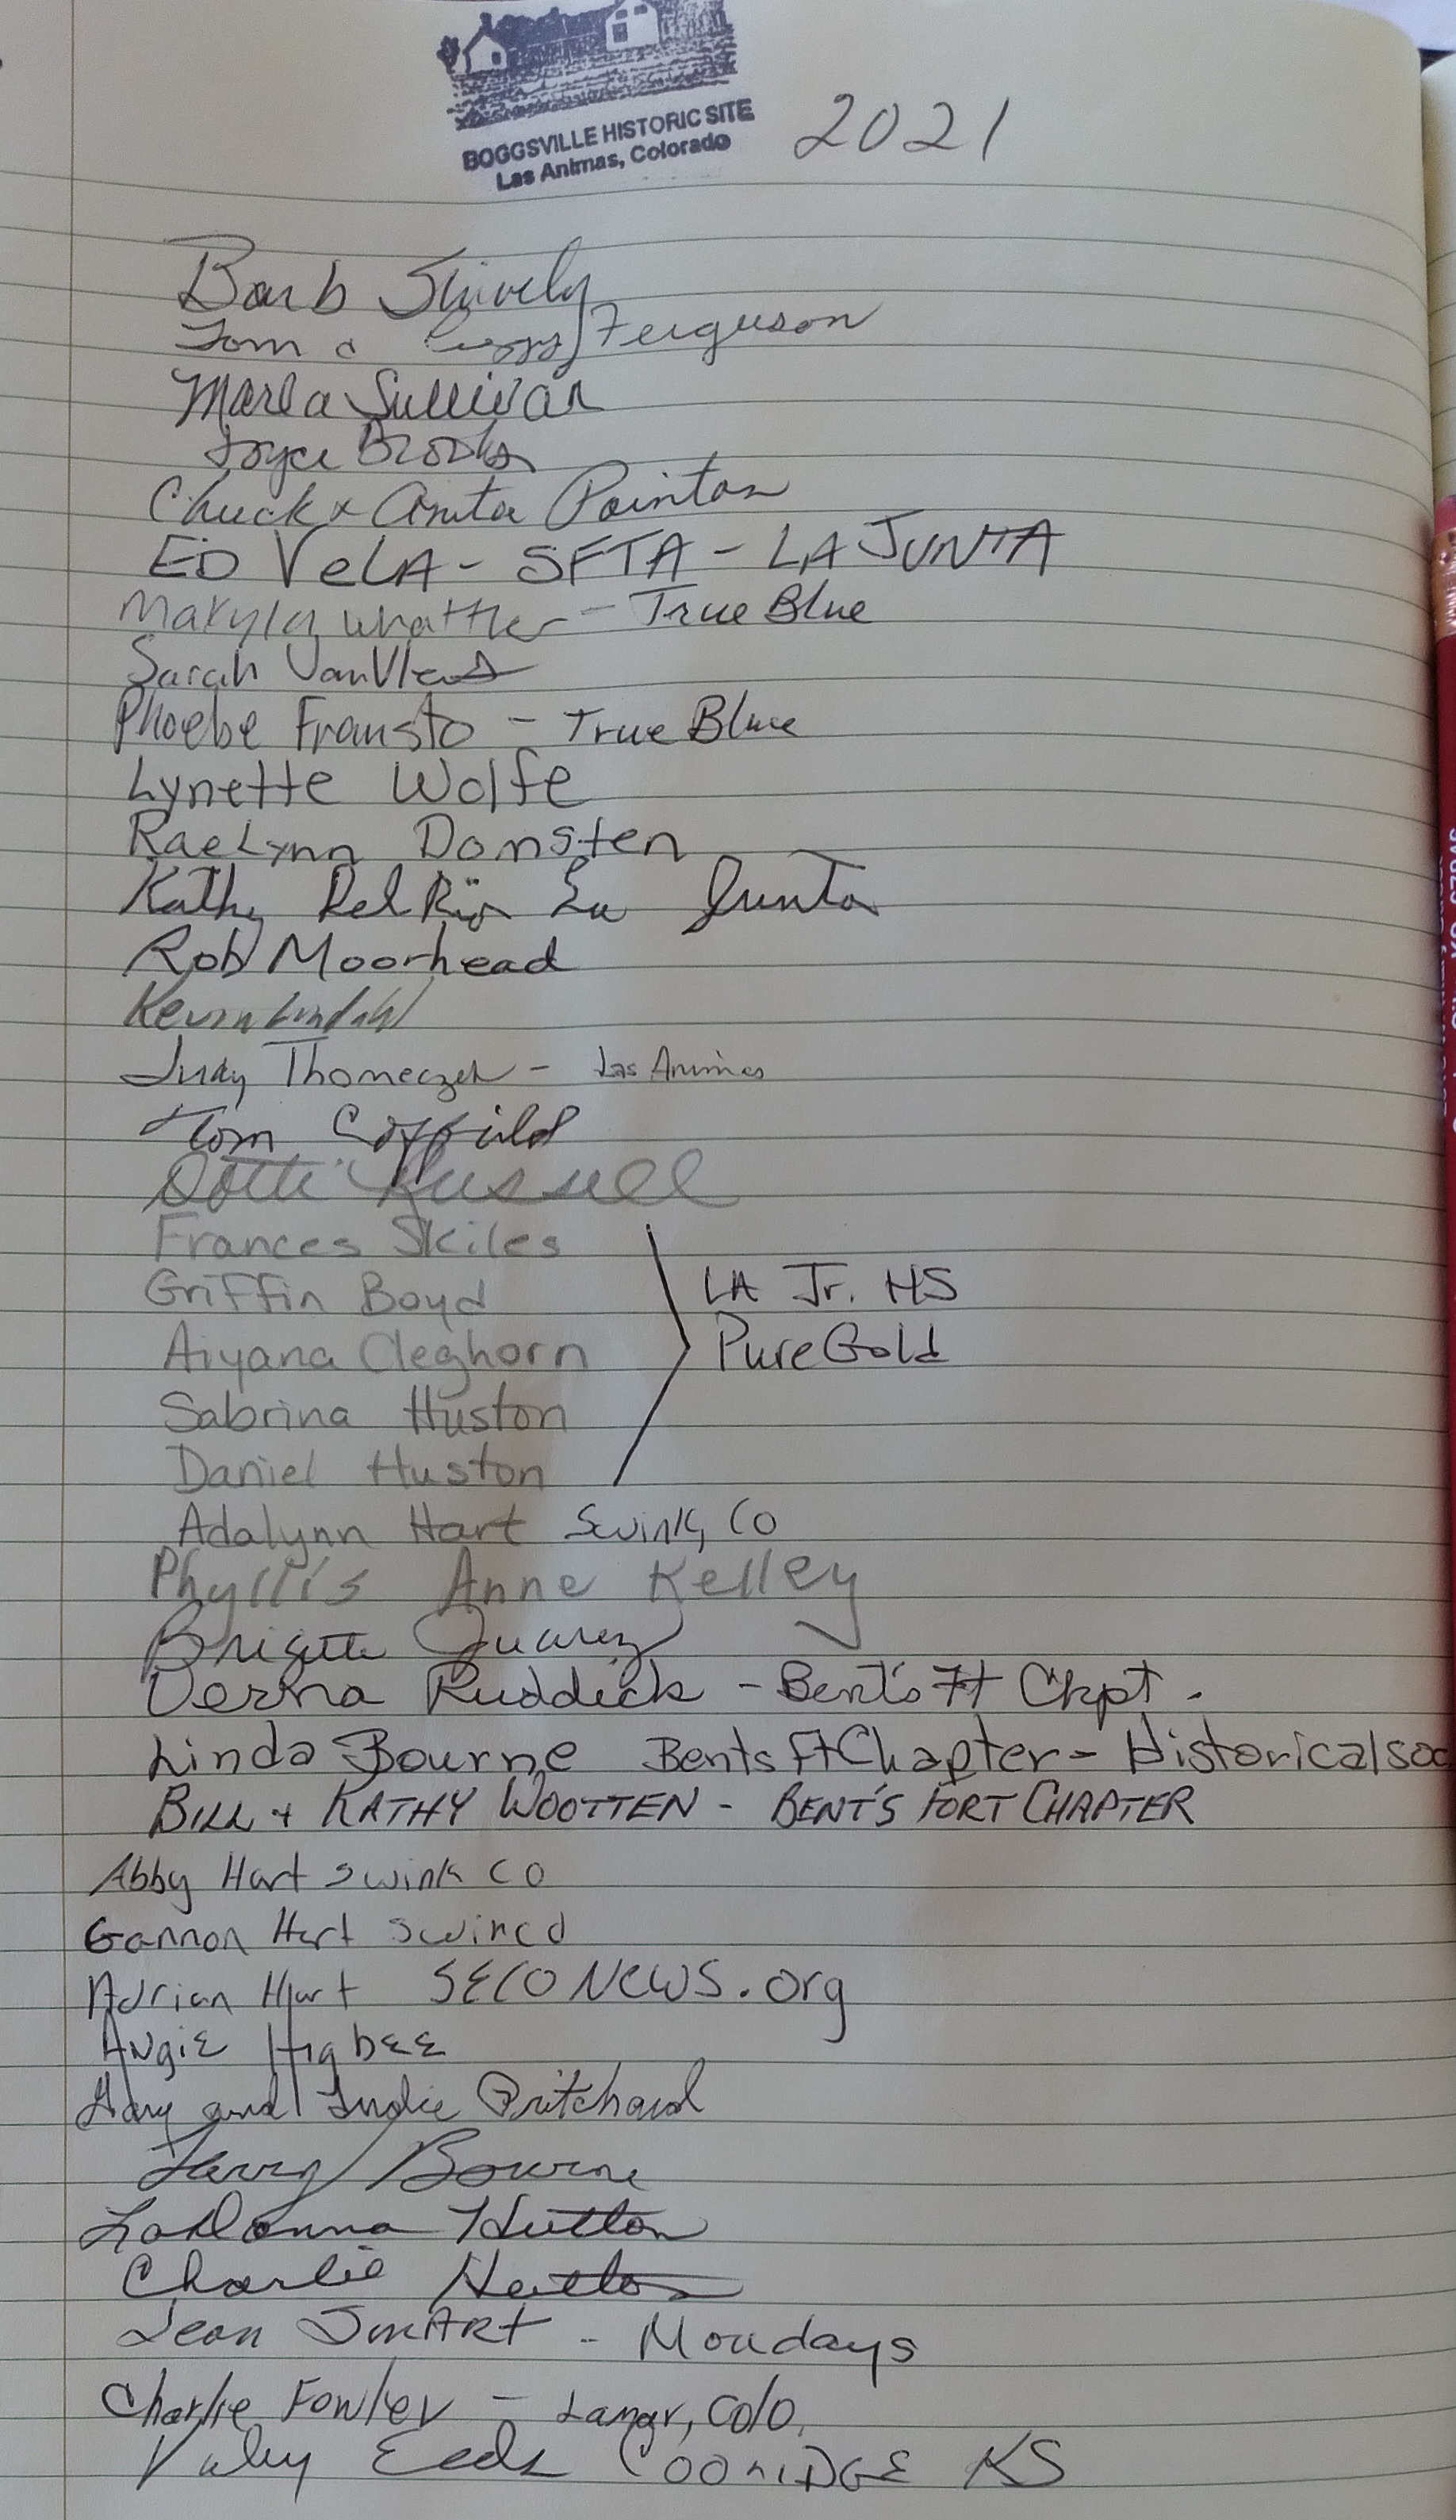 BOGGSVILLE HISTORIC SITE
Las Animas, Colorado
2021
Barb Shively
Tom & Peggy Ferguson
Marla Sullivan
Joyce Brooks
Chuck & Anita Pointon
ED VeLA - SFTA - LA JUNTA
Makyla - True Blue
Sarah
Phoebe Frausto - True Blue
Lynette Wolfe
RaeLynn Domsten
Kathy Del Rio La Junta
Rob Moorhead
Kevin Lindahl
Judy Thomeczek - Las Animas
Tom Coffield
Dotti Russell
Frances Skiles
Griffin Boyd
LA Jr. HS
Aiyana Cleghorn
Pure Gold
Sabrina Huston
Daniel Huston
Adalynn Hart Swink, CO
Phyllis Anne Kelley
Brigitte Juarez
Verna Ruddick - Bent's Ft Chpt.
Linda Bourne Bents Ft Chapter - Historical soc
BILL + KATHY WOOTTEN - BENT'S FORT CHAPTER
Abby Hart swink CO
Gannon Hart
Adrian Hart SECONEWS.org
ANgiE HigbEE
Gary and Pritchard
Bourne
LaDonna Hutton
Charlie Hutton
SmART - Mondays
Charlie Fowler - Lamar, Colo.
Eeds COOlIDGE KS